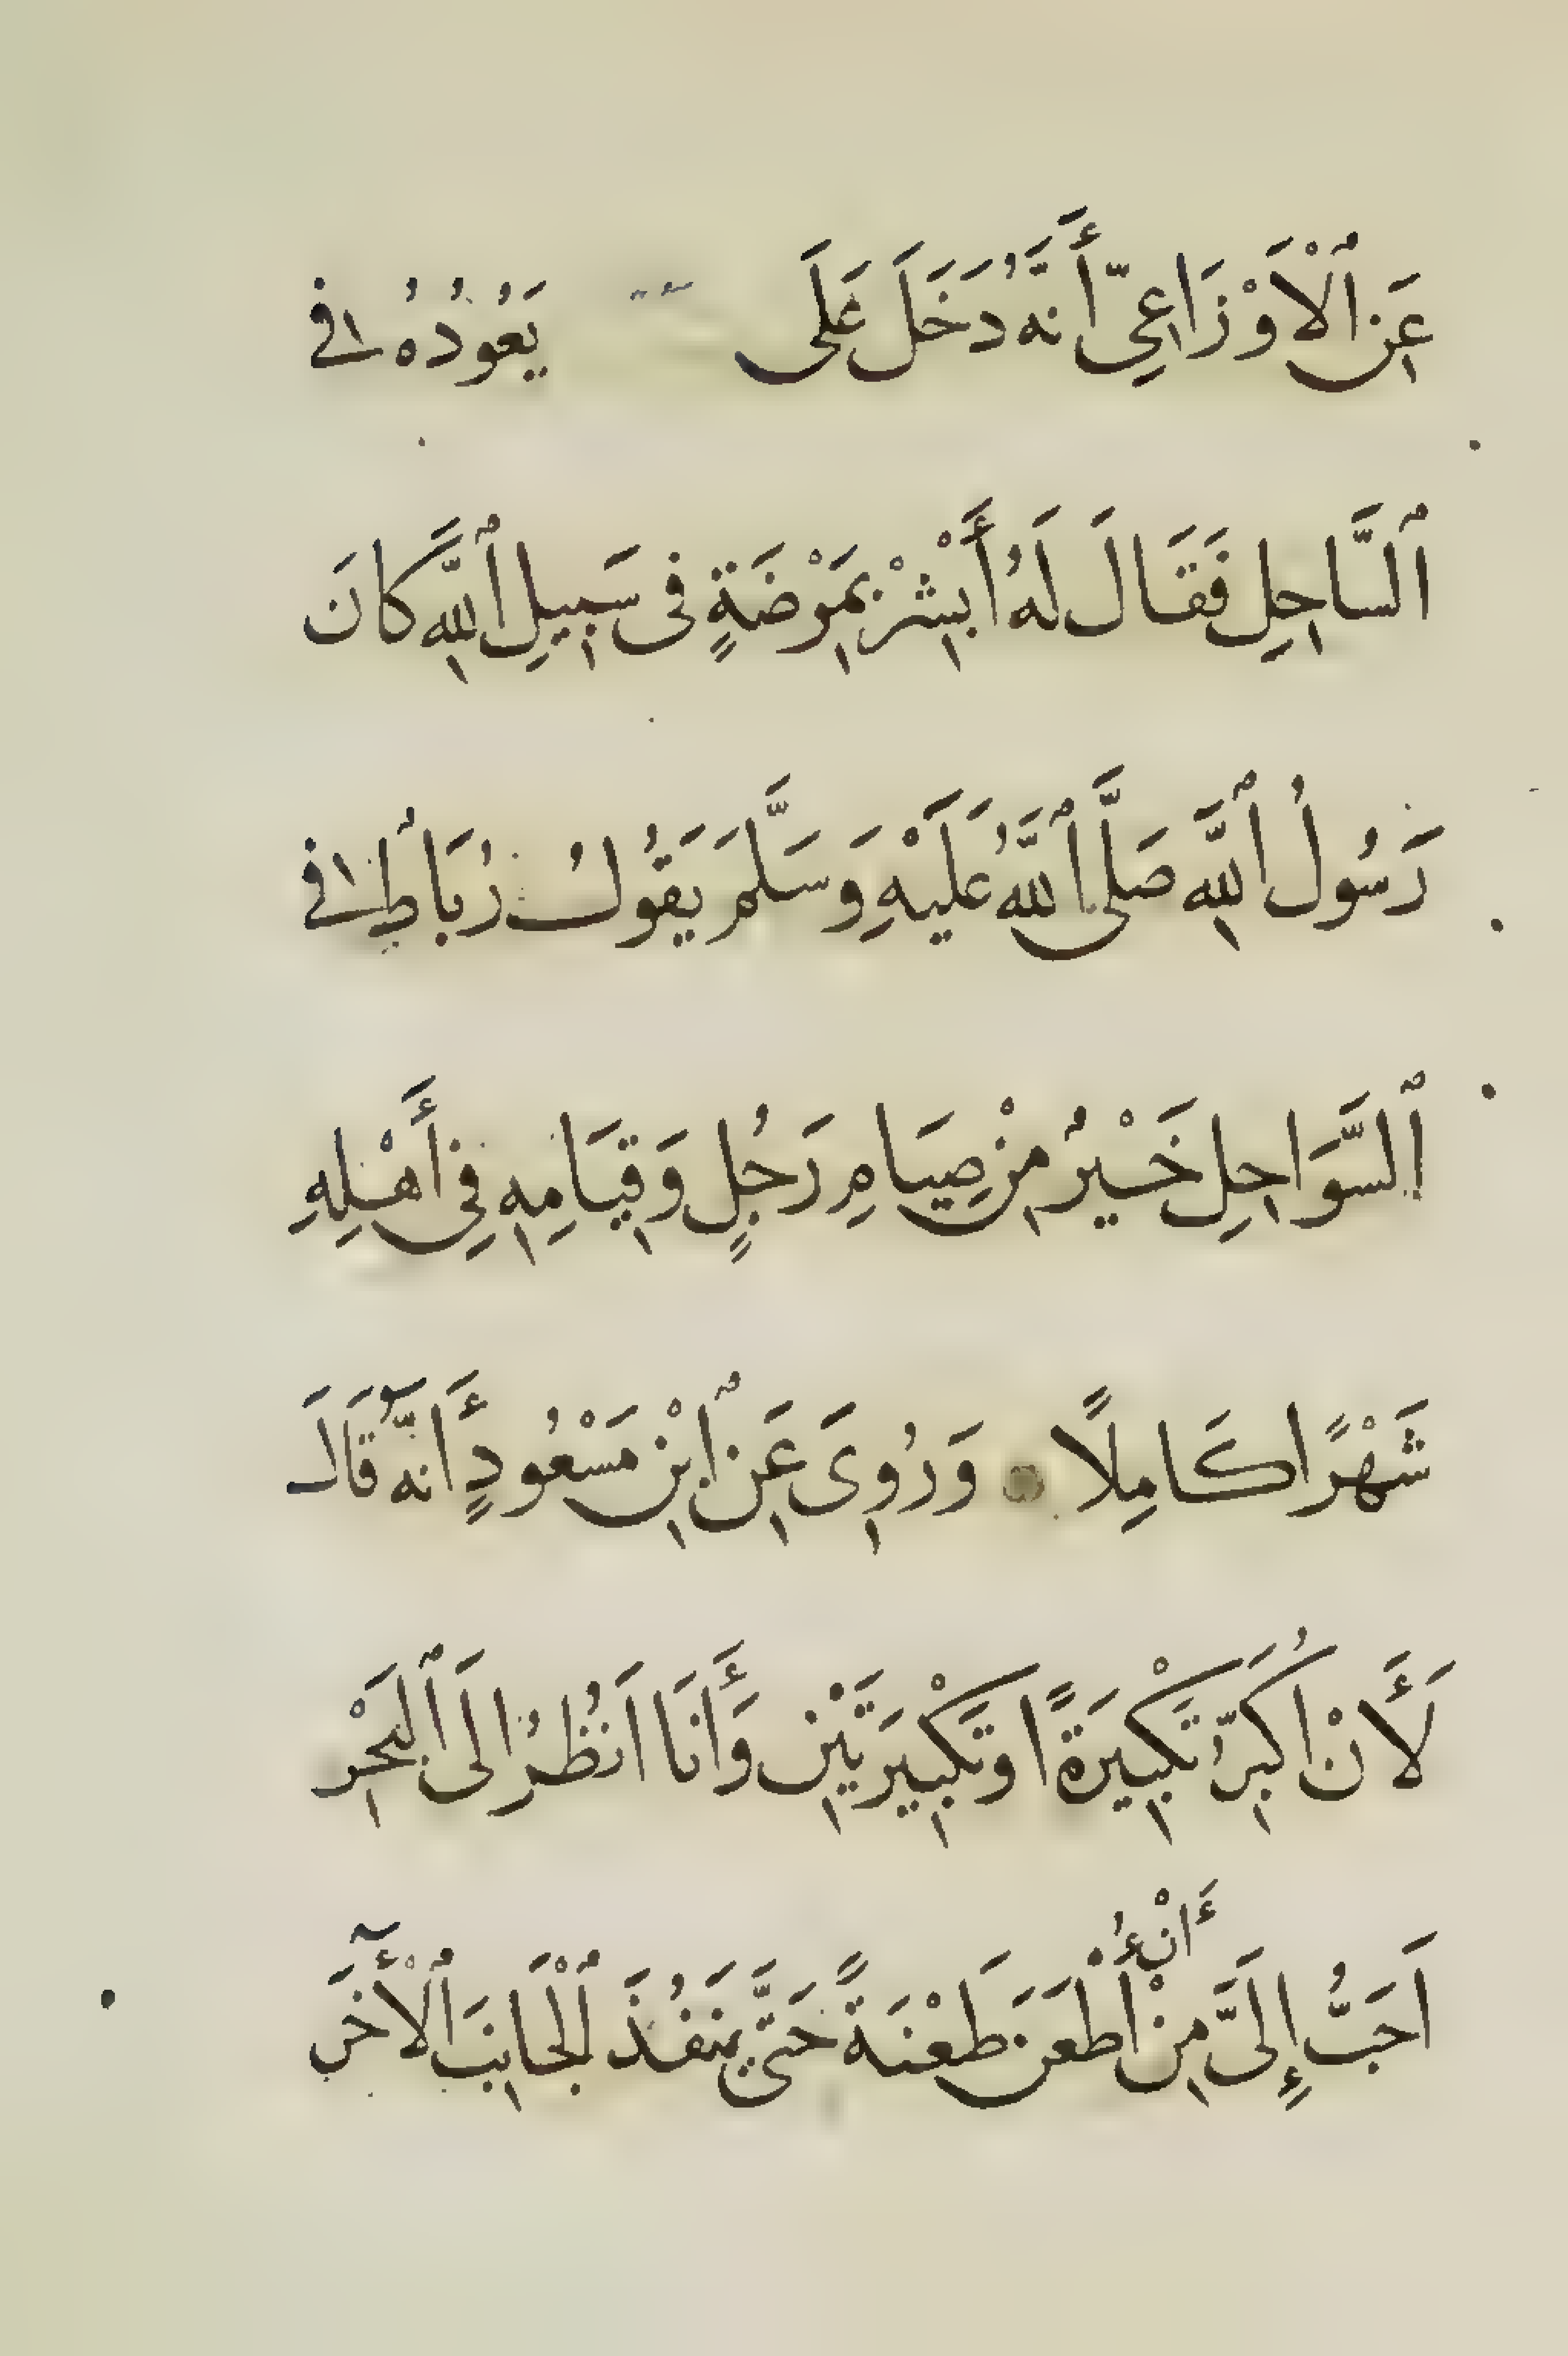 عَنِ ٱلْأَوْزَاعِيِّ أَنَّهُ دَخَلَ عَلَى يَعُودُهُ فِى
ٱلسَّاحِلِ فَقَالَ لَهُ أَبْشِرْ بِمَرْضَةٍ فِى سَبِيلِ ٱللَّهِ كَانَ
رَسُولُ ٱللَّهِ صَلَّى ٱللَّهُ عَلَيْهِ وَسَلَّمَ يَقُولُ رُبَاطٌ فِى
ٱلسَّوَاحِلِ خَيْرٌ مِنْ صِيَامِ رَجُلٍ وَقِيَامِهِ فِي أَهْلِهِ
شَهْرًا كَامِلًا وَرُوِىَ عَنِ ٱبْنِ مَسْعُودٍ أَنَّهُ قَالَ
لَأَنْ اُكَبِّرَ تَكْبِيرَةً اوتَكْبِيرَتَيْنِ وَأَنَا اَنْظُرُ الَى ٱلبَحْرِ
اَحَبُّ إِلَىَّ مِنْ أَنْ أُطْعَنَ طَعْنَةً حَتَّى يَنْفُذَ ٱلْجَانِبَ ٱلْأٓخَرَ